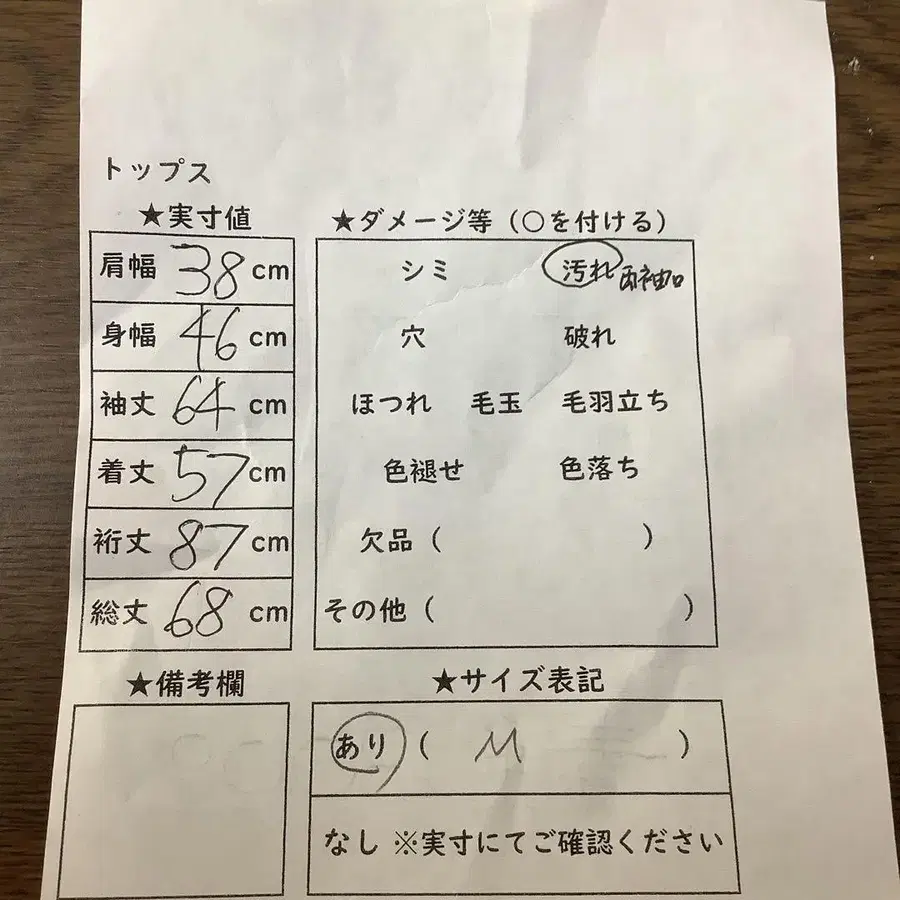 トップス
★実寸値
肩幅 38 cm
身幅 46 cm
袖丈 64 cm
着丈 57 cm
裄丈 87 cm
総丈 68 cm
★ダメージ等（○を付ける）
シミ 汚れ 両袖口
穴 破れ
ほつれ 毛玉 毛羽立ち
色褪せ 色落ち
欠品（ ）
その他（ ）
★備考欄
★サイズ表記
あり（ M ）
なし ※実寸にてご確認ください